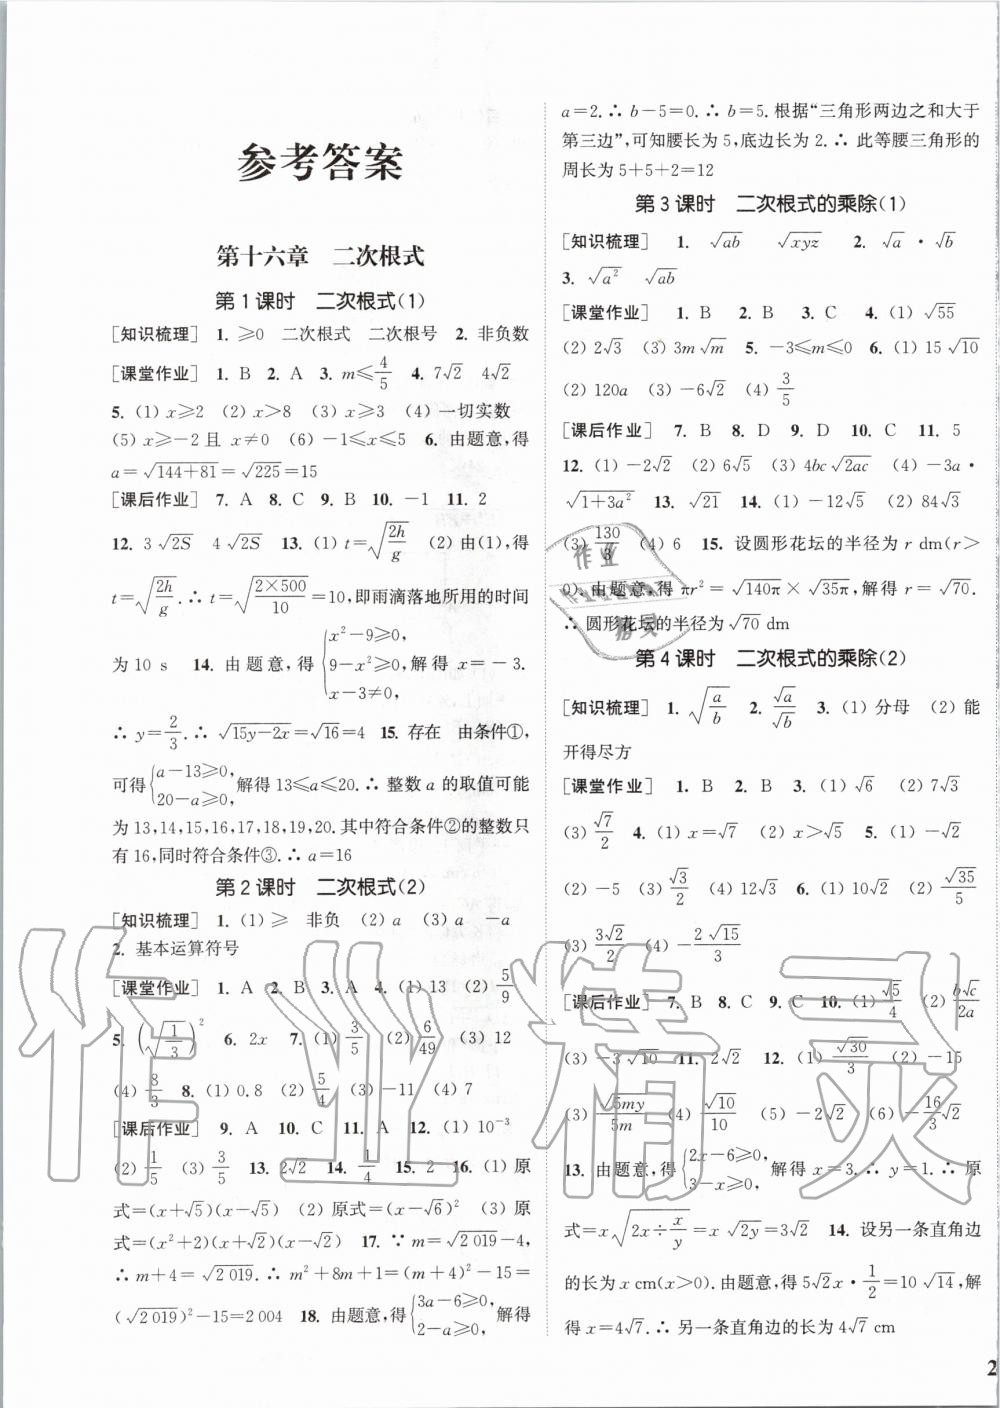 参考答案
第十六章 二次根式
第1课时 二次根式(1)
[知识梳理] 1. ≥0 二次根式 二次根号 2. 非负数
[课堂作业] 1. B 2. A 3. m≤4/5 4. 7√2 4√2
5. (1) x≥2 (2) x>8 (3) x≥3 (4) 一切实数
(5) x≥-2且 x≠0 (6) -1≤x≤5 6. 由题意,得
a=√(144+81)=√225=15
[课后作业] 7. A 8. C 9. B 10. -1 11. 2
12. 3√(2S) 4√(2S) 13. (1) t=√(2h/g) (2) 由(1),得
t=√(2h/g).∴ t=√(2×500/10)=10,即雨滴落地所用的时间
为10 s 14. 由题意,得{x²-9≥0, 9-x²≥0, x-3≠0, 解得 x=-3.
∴ y=2/3.∴ √(15y-2x)=√16=4 15. 存在 由条件①,
可得{a-13≥0, 20-a≥0, 解得13≤a≤20.∴ 整数 a 的取值可能
为13,14,15,16,17,18,19,20.其中符合条件②的整数只
有16,同时符合条件③.∴ a=16
第2课时 二次根式(2)
[知识梳理] 1. (1) ≥ 非负 (2) a (3) a -a
2. 基本运算符号
[课堂作业] 1. A 2. B 3. A 4. (1) 13 (2) 5/9
5. (√(1/3))² 6. 2x 7. (1) 3/5 (2) 6/49 (3) 12
(4) 8/3 8. (1) 0.8 (2) 5/4 (3) -11 (4) 7
[课后作业] 9. A 10. C 11. A 12. (1) 10⁻³
(2) 1/5 (3) 3/5 13. 2√2 14. 1/4 15. 2 16. (1) 原
式=(x+√5)(x-√5) (2) 原式=(x-√6)² (3) 原
式=(x²+2)(x+√2)(x-√2) 17. ∵ m=√2 019-4,
∴ m+4=√2 019.∴ m²+8m+1=(m+4)²-15=
(√2 019)²-15=2 004 18. 由题意,得{3a-6≥0, 2-a≥0, 解得
a=2.∴ b-5=0.∴ b=5. 根据“三角形两边之和大于
第三边”,可知腰长为5,底边长为2.∴ 此等腰三角形的
周长为5+5+2=12
第3课时 二次根式的乘除(1)
[知识梳理] 1. √(ab) √(xyz) 2. √a · √b
3. √(a²) √(ab)
[课堂作业] 1. B 2. B 3. C 4. (1) √55
(2) 2√3 (3) 3m√m 5. -3≤m≤0 6. (1) 15√10
(2) 120a (3) -6√2 (4) 3/5
[课后作业] 7. B 8. D 9. D 10. C 11. 5
12. (1) -2√2 (2) 6√5 (3) 4bc√(2ac) (4) -3a·
√(1+3a²) 13. √21 14. (1) -12√5 (2) 84√3
(3) 130/3 (4) 6 15. 设圆形花坛的半径为 r dm(r>
0). 由题意,得 πr²=√(140π)×√(35π),解得 r=√70.
∴ 圆形花坛的半径为√70 dm
第4课时 二次根式的乘除(2)
[知识梳理] 1. √(a/b) 2. √a/√b 3. (1) 分母 (2) 能
开得尽方
[课堂作业] 1. B 2. B 3. (1) √6 (2) 7√3
(3) √7/2 4. (1) x=√7 (2) x>√5 5. (1) -√2
(2) -5 (3) √3/2 (4) 12√3 6. (1) √2 (2) √35/5
(3) 3√2/2 (4) -2√15/3
[课后作业] 7. B 8. C 9. C 10. (1) √5/4 (2) b√c/2a
(3) -3√10 11. 2√2 12. (1) √30/3 (2) -15
(3) √(5my)/5m (4) √10/10 (5) -2√2 (6) -16/3√2
13. 由题意,得{2x-6≥0, 3-x≥0, 解得 x=3.∴ y=1.∴ 原
式=x√(2x÷x/y)=x√(2y)=3√2 14. 设另一条直角边
的长为 x cm(x>0).由题意,得5√2x·1/2=10√14,解
得 x=4√7.∴ 另一条直角边的长为4√7 cm
2
作业精灵
作业
精灵